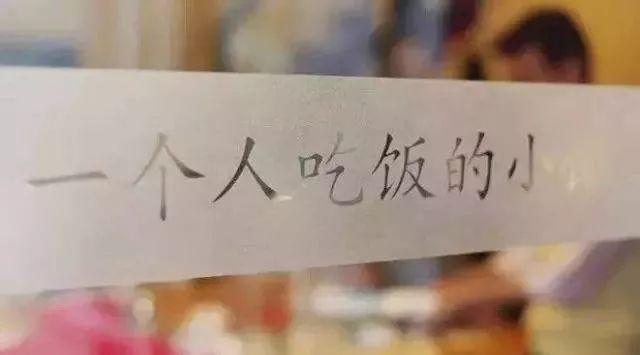 一个人吃饭的小